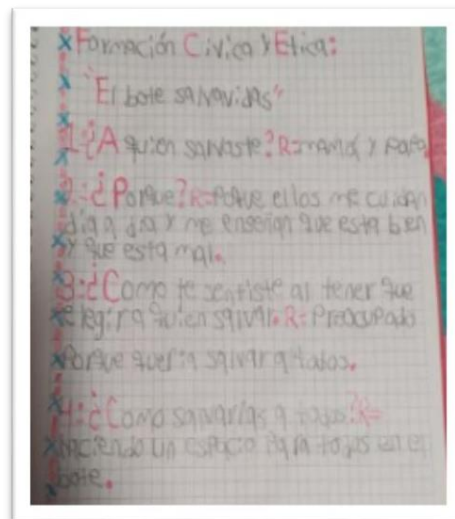 Formación Cívica y Etica:
"El bote salvavidas"
1-¿A quien salvaste? R= mamá y papá.
2-¿Porque? R= Porque ellos me cuidan
dia a dia y me enseñan que esta bien
y que esta mal.
3-¿Como te sentiste al tener que
elegir a quien salvar. R= Preocupado
Porque queria salvar a todos.
4-¿Como salvarias a todos? R=
haciendo un espacio Para todos en el
bote.